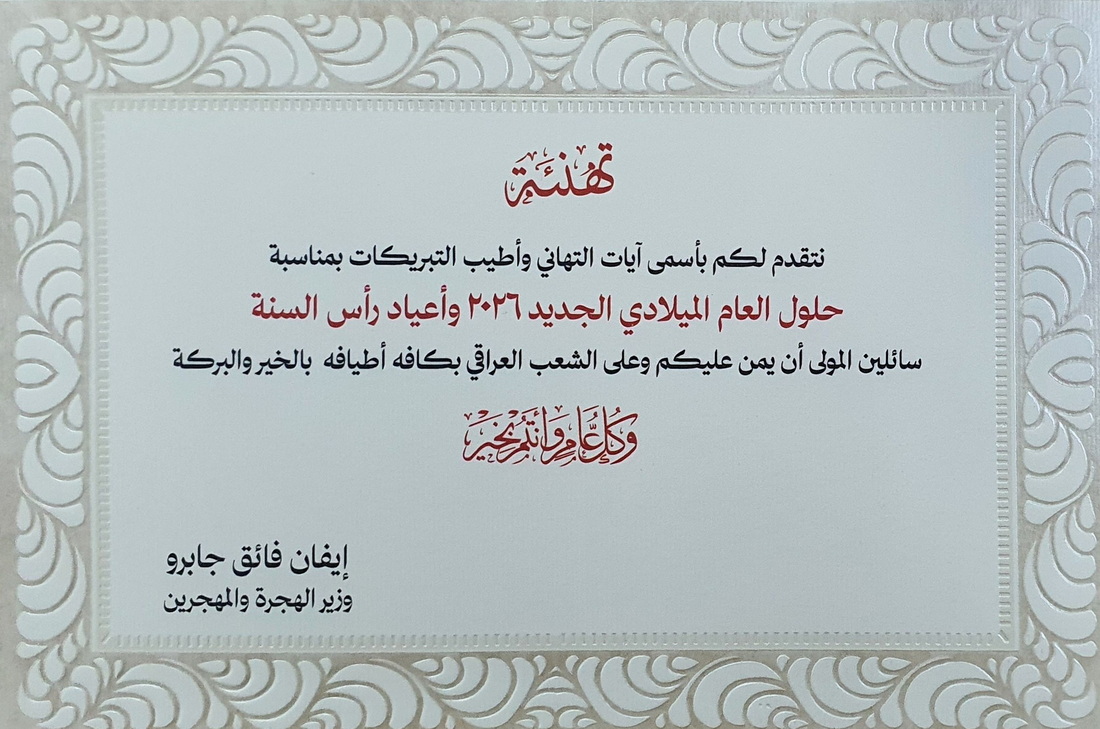 تهنئة
نتقدم لكم بأسمى آيات التهاني وأطيب التبريكات بمناسبة
حلول العام الميلادي الجديد ٢٠٢٦ وأعياد رأس السنة
سائلين المولى أن يمن عليكم وعلى الشعب العراقي بكافه أطيافه بالخير والبركة
وكُلُّ عَامٍ وَأَنْتُمْ بِخَيْرٍ
إيفان فائق جابرو
وزير الهجرة والمهجرين